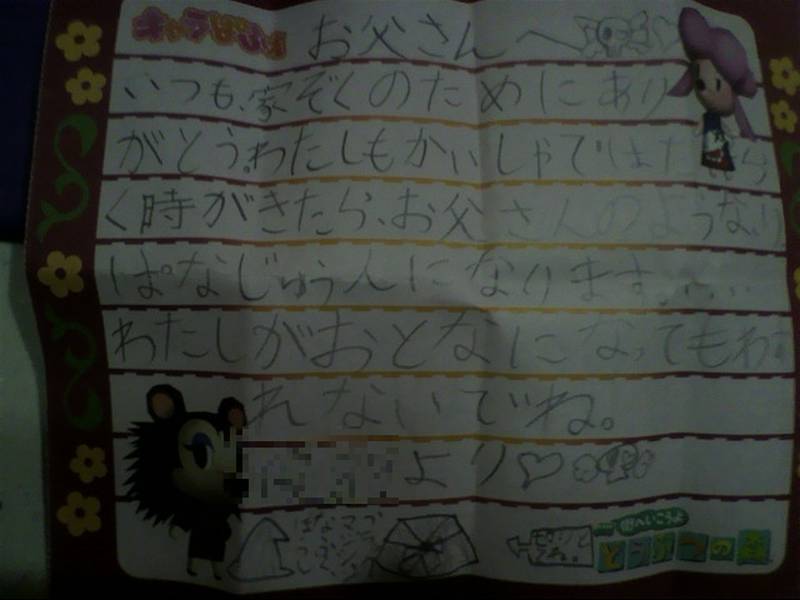 キャラぱふぇ
お父さんへ
いつも、家ぞくのためにあり
がとう。わたしもかいしゃではたら
く時がきたら、お父さんのようなり
ぱなじゅう人になります。
わたしがおとなになってもわす
れないでね。
より♡
街へいこうよ
どうぶつの森